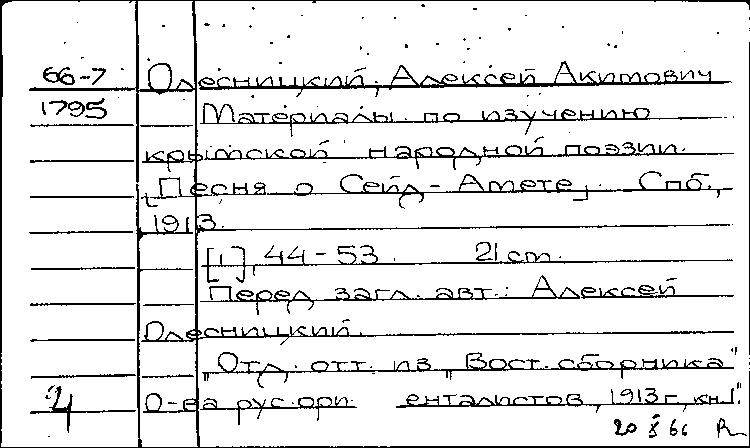 66-7 Олесницкий, Алексей Акимович
1795 Материалы по изучению
крымской народной поэзии.
[Песня о Сейд-Амете]. Спб.,
1913.
[1], 44-53. 21 cm.
Перед загл. авт.: Алексей
Олесницкий.
"Отд. отт. из "Вост. сборника"
О-ва рус. ори енталистов, 1913 г, кн.1".
20 X 66